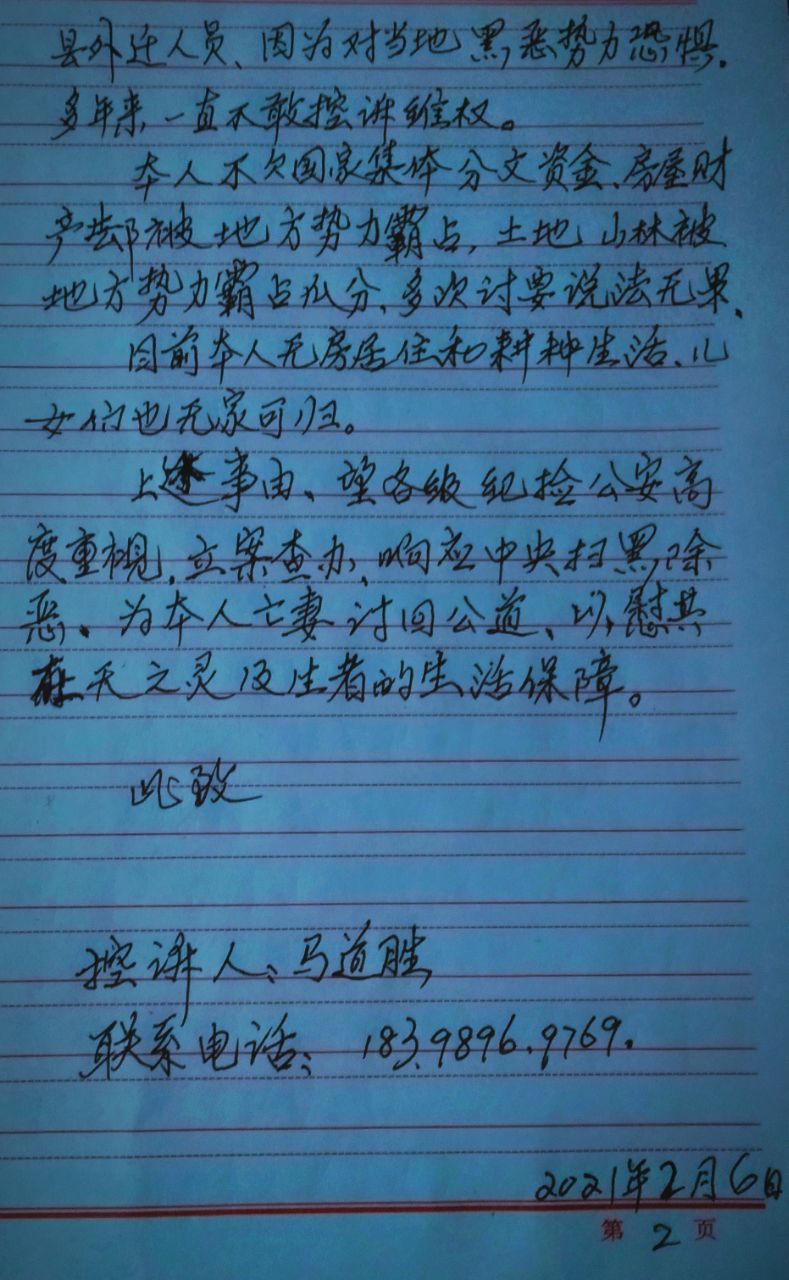 县外迁人员、因为对当地黑恶势力恐惧.
多年来,一直不敢控诉维权。
本人不欠国家集体分文资金、房屋财
产却被地方势力霸占,土地山林被
地方势力霸占瓜分、多次讨要说法无果、
目前本人无房居住和耕种生活、儿
女们也无家可归。
上述事由、望各级纪检公安高
度重视,立案查办、响应中央扫黑除
恶、为本人亡妻讨回公道、以慰其
在天之灵及生者的生活保障。
此致
控诉人:马道胜
联系电话: 183.9896.9769.
2021年2月6日
第 2 页